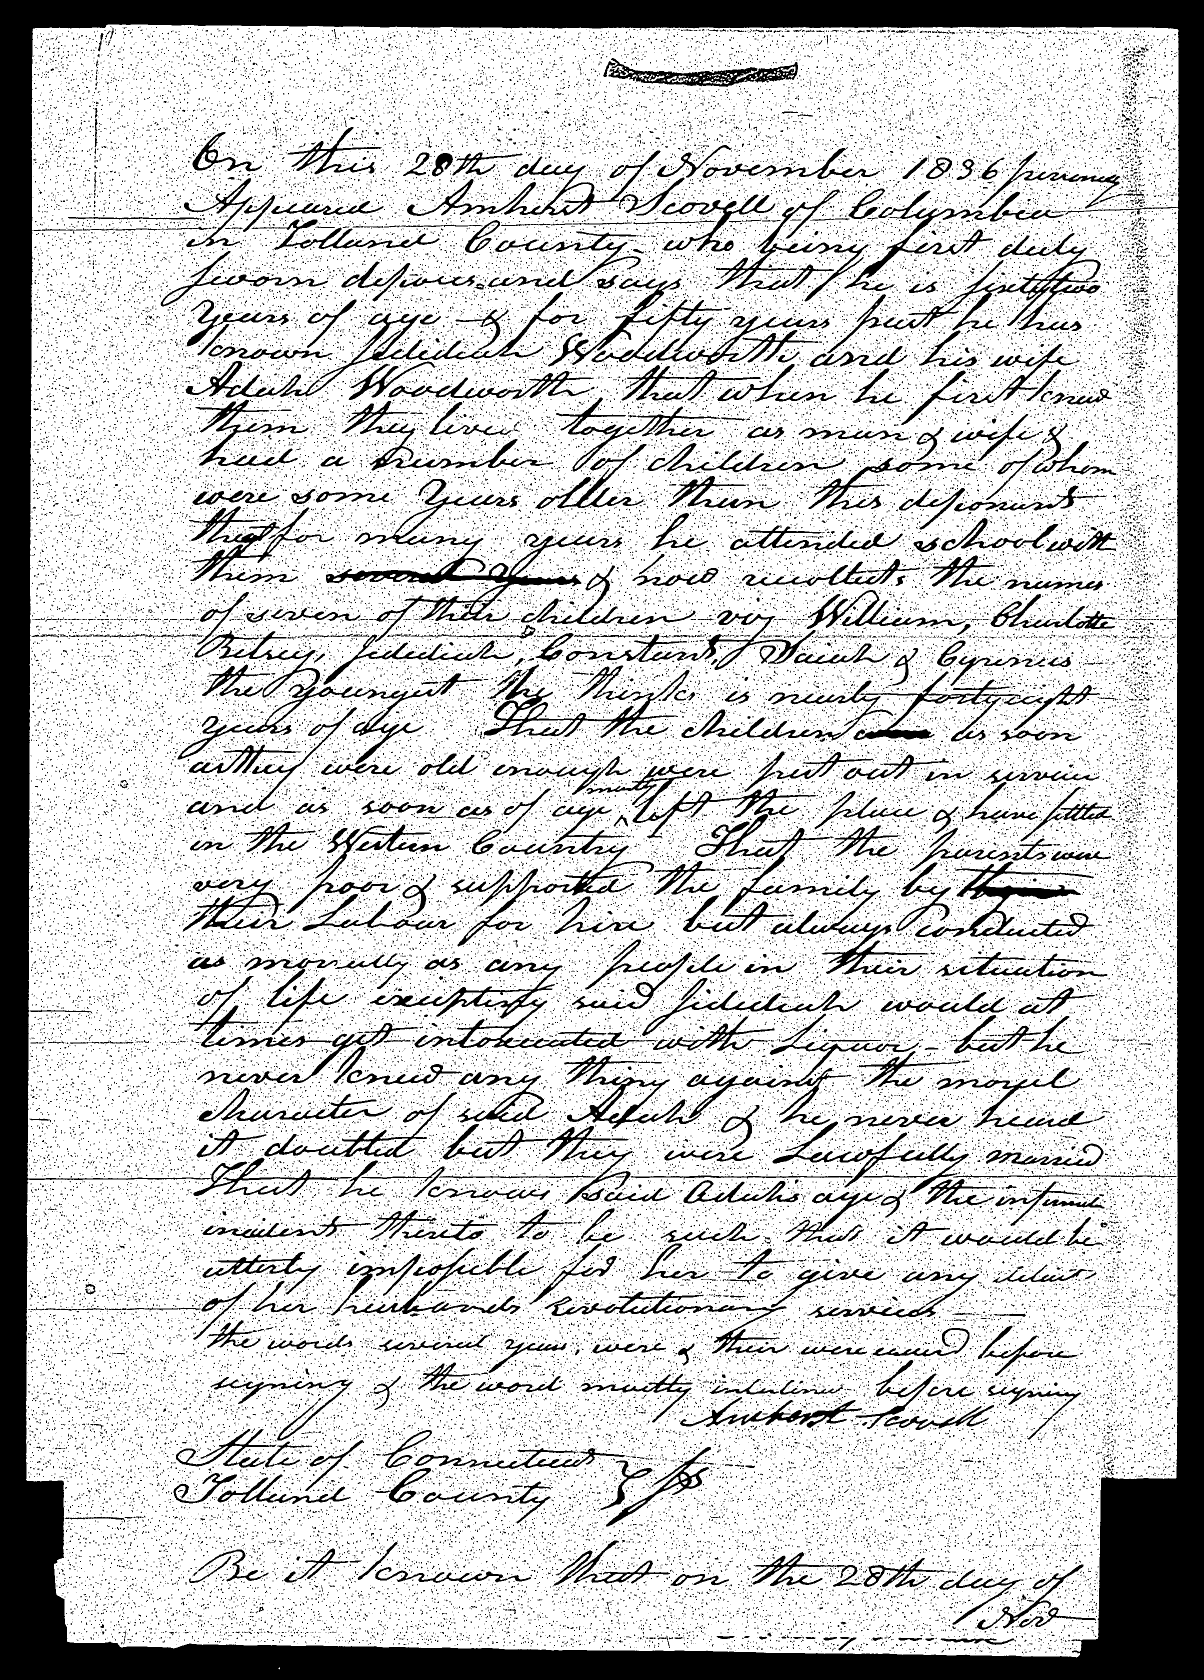 On this 28th day of November 1836 personaly
Appeared Amherst Scovell of Columbia
in Tolland County - who being first duly
sworn deposes and says that he is sixtytwo
Years of age - & for fifty years past he has
known Jedidiah Woodworth and his wife
Adah Woodworth, that when he first knew
them they lived together as man & wife &
had a number of children some of whom
were some Years older than this deponant
that for many years he attended school with
them several years & now recollects the names
of seven of their children viz William, Charlotte
Betsey, Jedediah, Constant, Isaiah & Cyrenus -
the youngest he thinks is nearly fortyeight
years of age That the children were as soon
as they were old enough were put out in service
and as soon as of age mostly left the place & have settled
in the Western Country That the parents were
very poor & supported the family by their
their Labour for hire but always conducted
as morrally as any people in their situation
of life excepting said Jidediah would at
times get intoxicated with Liquor - but he
never knew any thing against the moral
character of said Adah & he never heard
it doubted but they were Lawfully married
That he knows said Adahs age & the infirmities
incidents thereto to be such that it would be
utterly impossible for her to give any
of her husbands revolutionary services
the words several years, were & their were erased before
signing & the word mostly interlined before signing
Amherst Scovell
State of Connecticut
Tolland County } ss
Be it known that on the 28th day of
Nov